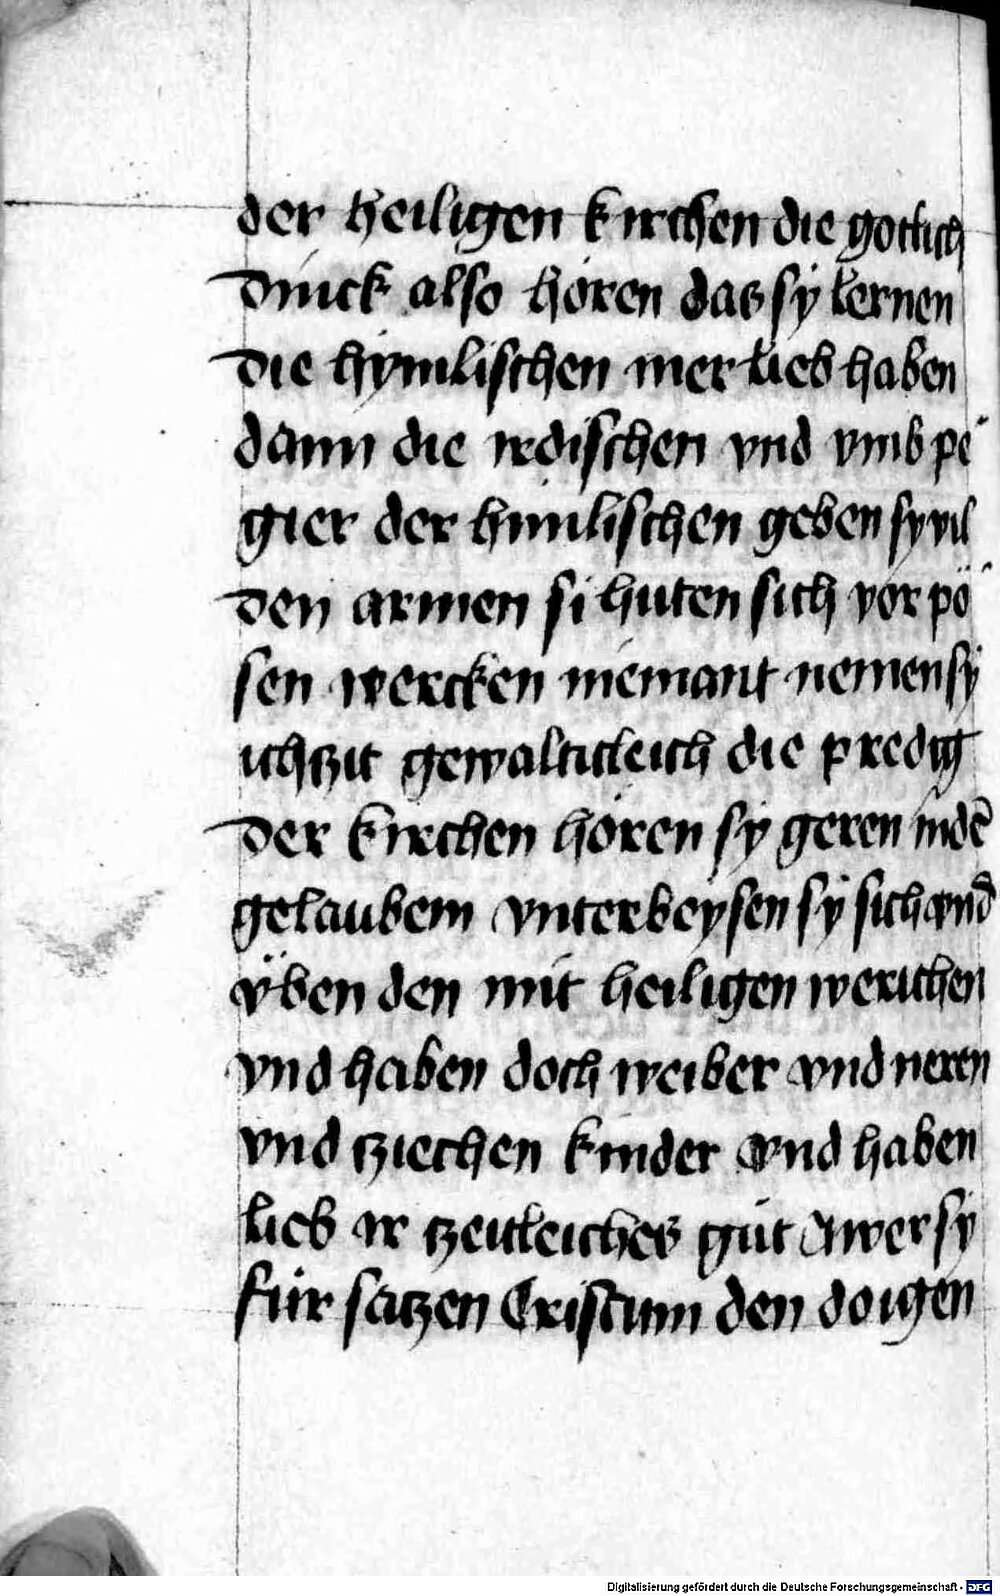 der heiligen kirchen die gotlich
dinck also hören das sy lernen
die hymlischen mer lieb haben
dann die irdischen vnd vmb pe
gier der himlischen geben sy vil
den armen si huten sich vor pö
sen wercken niemant nemen sy
ichtzit gewaltitleich die predig
der kirchen hören sy geren in dē
gelaubem vnterbeysen sy sich vnd
vben den mit heiligen werichen
vnd haben doch weiber vnd neren
vnd tziechen kinder vnd haben
lieb ir tzeitleiches gut Awer sy
für satzen Cristum den doigen
Digitalisierung gefördert durch die Deutsche Forschungsgemeinschaft - DFG